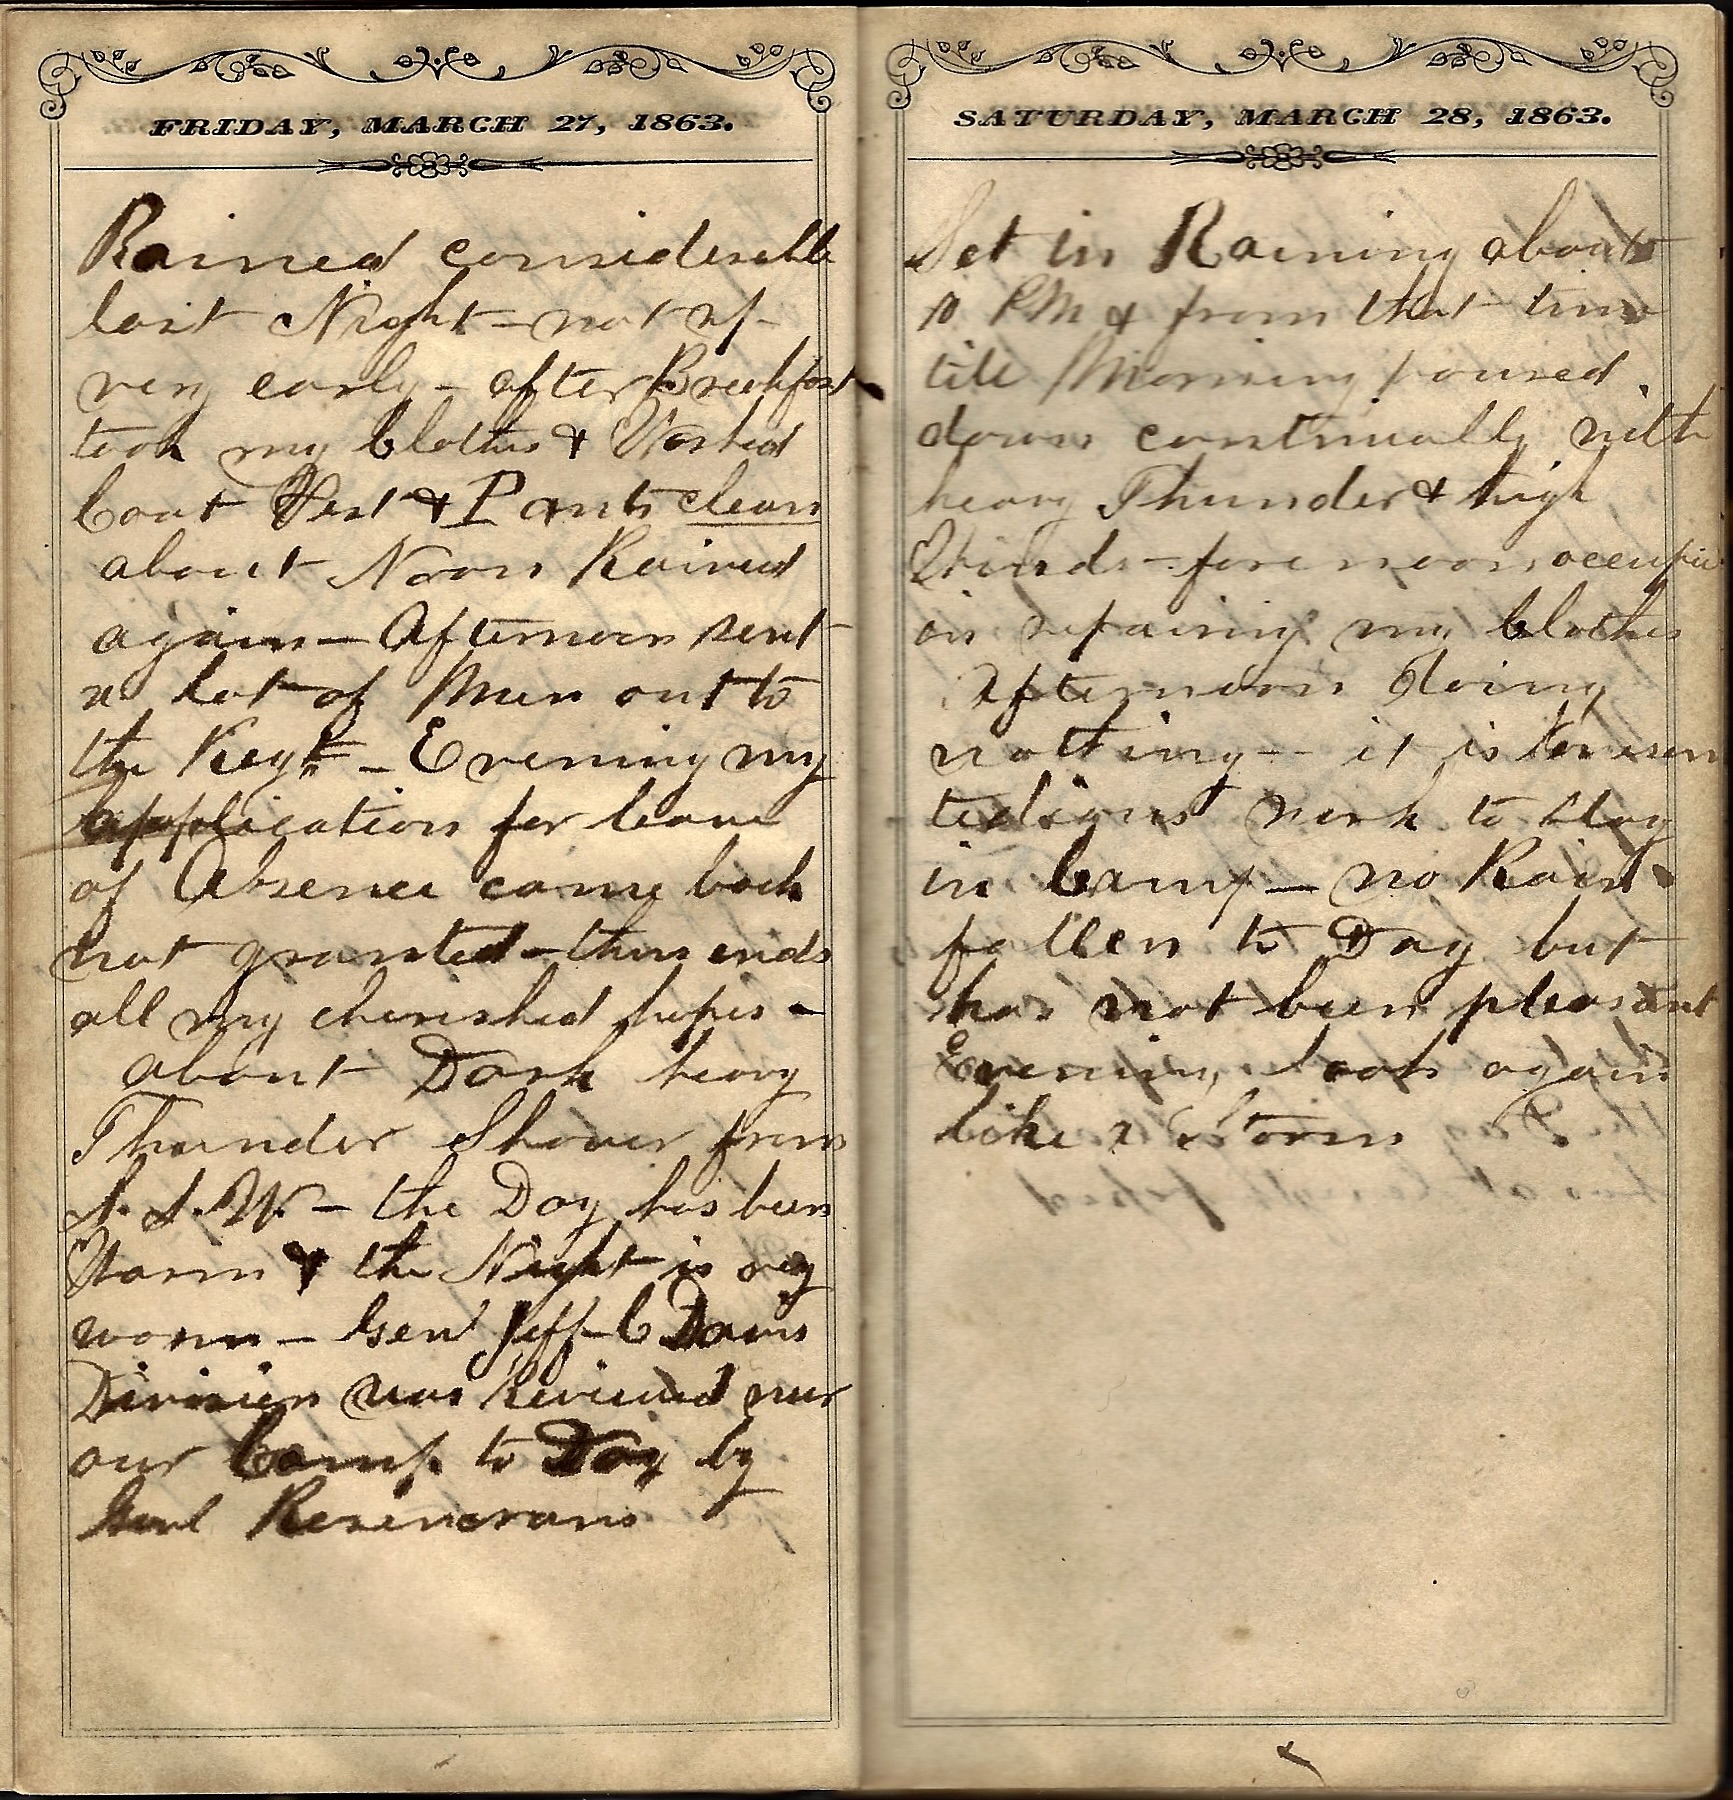 FRIDAY, MARCH 27, 1863.
Rained considerable
last Night — not up
very early — after Breakfast
took my Clothes & Washed
Coat Vest & Pants clean
about Noon Rained
again — Afternoon sent
a lot of Men out to
the Regt — Evening my
application for leave
of Absence came back
not granted — thus ends
all my cherished hopes —
about Dark heavy
Thunder Shower from
S. S. W. — the Day has been
Warm & the Night is very
warm — Genl Jeff C Davis
Division was Reviewed near
our Camp to Day by
Genl Rosencrans
SATURDAY, MARCH 28, 1863.
Set in Raining about
10 PM & from that time
till Morning poured
down continually with
heavy Thunder & high
Winds — fore noon occupied
in repairing my Clothes
Afternoon doing
nothing — it is
tedious work to stay
in Camp — no Rain
fallen to Day but
has not been pleasant
Evening looks again
like a Storm